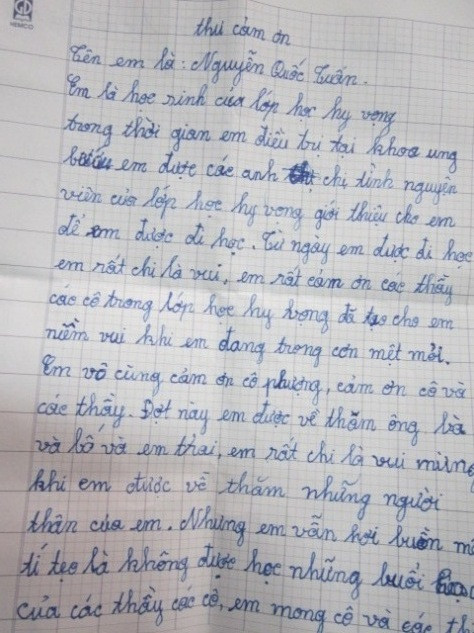 HEMCO
thư cảm ơn
Tên em là: Nguyễn Quốc Tuấn.
Em là học sinh của lớp học hy vọng
trong thời gian em điều trị tại khoa ung
bướu em được các anh chị tình nguyện
viên của lớp học hy vọng giới thiệu cho em
để em được đi học. Từ ngày em được đi học
em rất chi là vui, em rất cảm ơn các thầy
các cô trong lớp học hy vọng đã tạo cho em
niềm vui khi em đang trong cơn mệt mỏi.
Em vô cùng cảm ơn cô phượng, cảm ơn cô và
các thầy. Đợt này em được về thăm ông bà
và bố và em trai, em rất chi là vui mừng
khi em được về thăm những người
thân của em. Nhưng em vẫn hơi buồn
tí tẹo là không được học những buổi học
của các thầy các cô, em mong cô và các